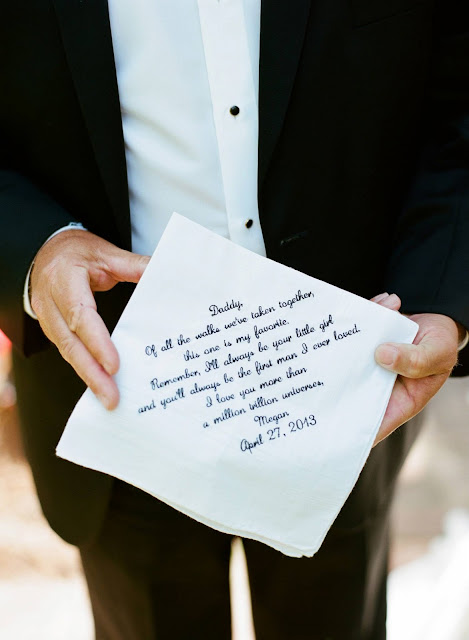 Daddy,
Of all the walks we've taken together,
this one is my favorite.
Remember, I'll always be your little girl
and you'll always be the first man I ever loved.
I love you more than
a million trillion universes,
Megan
April 27, 2013